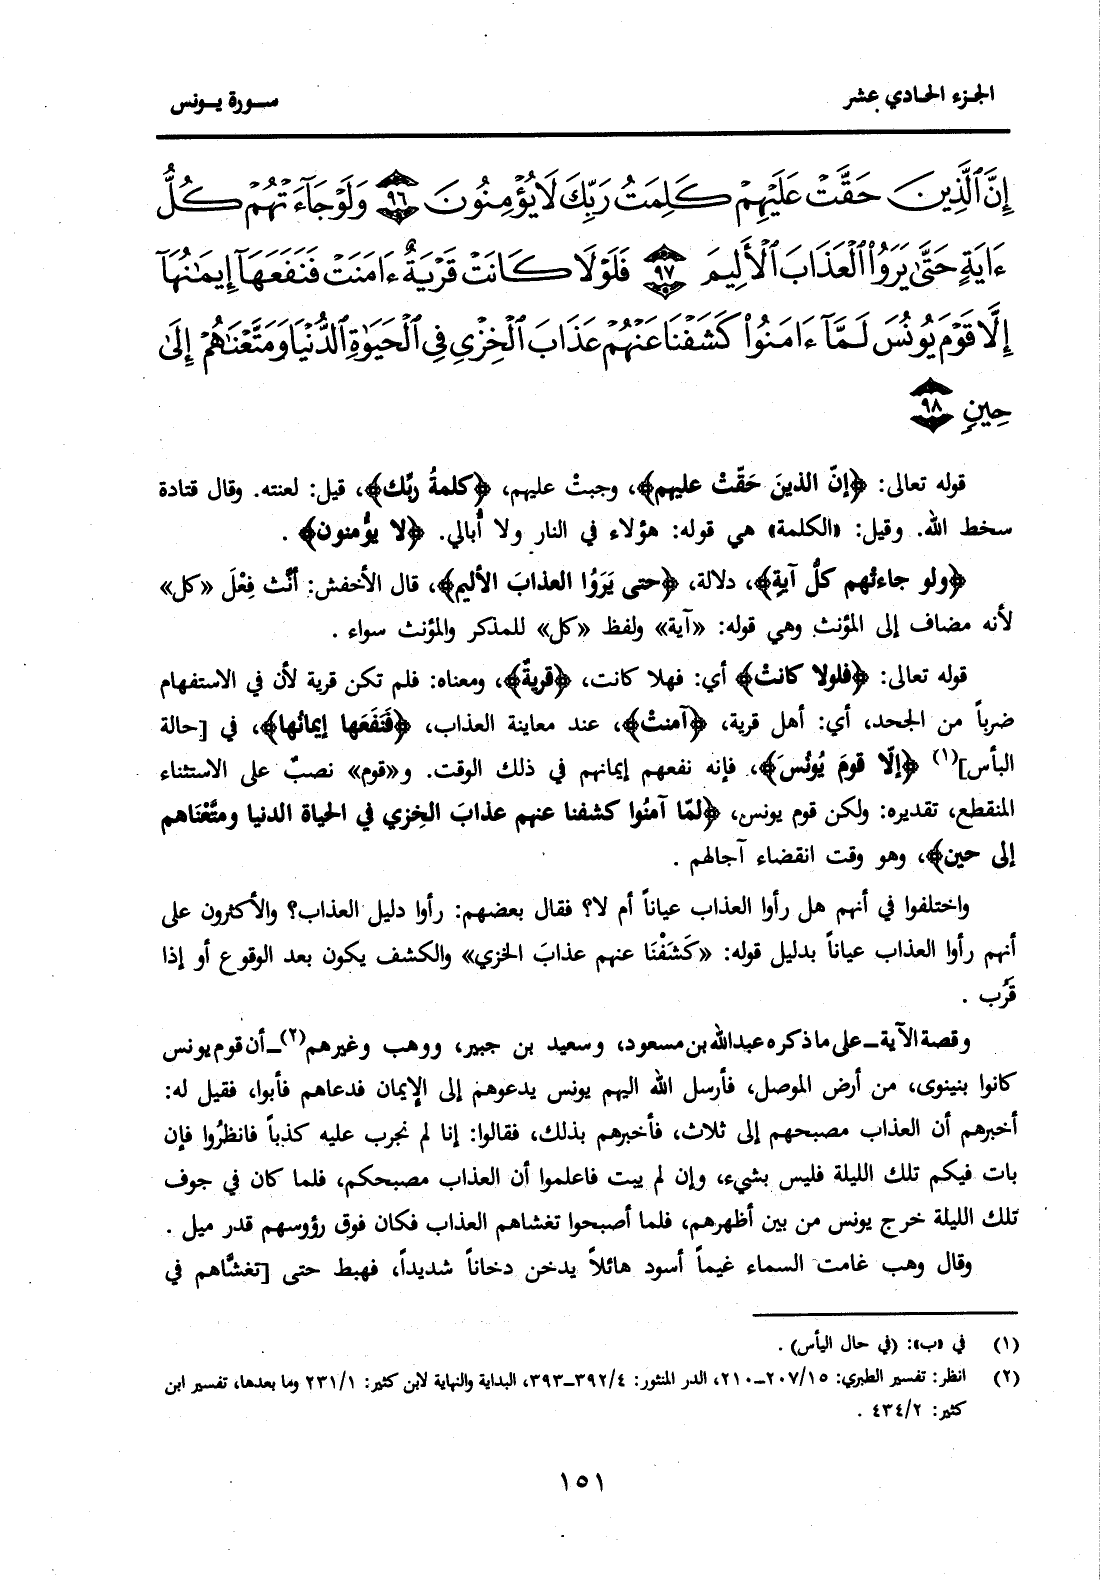 الجزء الحادي عشر
سورة يونس
إِنَّ ٱلَّذِينَ حَقَّتْ عَلَيْهِمْ كَلِمَتُ رَبِّكَ لَا يُؤْمِنُونَ ٩٦ وَلَوْ جَآءَتْهُمْ كُلُّ
ءَايَةٍ حَتَّىٰ يَرَوُا۟ ٱلْعَذَابَ ٱلْأَلِيمَ ٩٧ فَلَوْلَا كَانَتْ قَرْيَةٌ ءَامَنَتْ فَنَفَعَهَآ إِيمَٰنُهَآ
إِلَّا قَوْمَ يُونُسَ لَمَّآ ءَامَنُوا۟ كَشَفْنَا عَنْهُمْ عَذَابَ ٱلْخِزْىِ فِى ٱلْحَيَوٰةِ ٱلدُّنْيَا وَمَتَّعْنَٰهُمْ إِلَىٰ
حِينٍ ٩٨
قوله تعالى: ﴿إنّ الذينَ حَقّتْ عليهم﴾، وجبتْ عليهم، ﴿كلمةُ ربِّك﴾، قيل: لعنته. وقال قتادة
سخط الله. وقيل: «الكلمة» هي قوله: هؤلاء في النار ولا أُبالي. ﴿لا يؤُمنون﴾ .
﴿ولو جاءتْهم كلُّ آيةٍ﴾، دلالة، ﴿حتى يَرَوُا العذابَ الأليم﴾، قال الأخفش: أنَّث فِعْلَ «كل»
لأنه مضاف إلى المؤنث وهي قوله: «آية» ولفظ «كل» للمذكر والمؤنث سواء .
قوله تعالى: ﴿فلولا كانتْ﴾ أي: فهلا كانت، ﴿قريةٌ﴾، ومعناه: فلم تكن قرية لأن في الاستفهام
ضرباً من الجحد، أي: أهل قرية، ﴿آمنتْ﴾، عند معاينة العذاب، ﴿فَنَفَعَها إيمانُها﴾، في [حالة
البأس](١) ﴿إلّا قومَ يُونُسَ﴾، فإنه نفعهم إيمانهم في ذلك الوقت. و«قوم» نصبٌ على الاستثناء
المنقطع، تقديره: ولكن قوم يونس، ﴿لمّا آمنُوا كشفنا عنهم عذابَ الخِزي في الحياة الدنيا ومتَّعْنَاهم
إلى حين﴾، وهو وقت انقضاء آجالهم .
واختلفوا في أنهم هل رأوا العذاب عياناً أم لا؟ فقال بعضهم: رأوا دليل العذاب؟ والأكثرون على
أنهم رأوا العذاب عياناً بدليل قوله: «كَشَفْنَا عنهم عذابَ الخزي» والكشف يكون بعد الوقوع أو إذا
قَرُب .
وقصة الآية ـ على ما ذكره عبدالله بن مسعود، وسعيد بن جبير، ووهب وغيرهم(٢) ـ أن قوم يونس
كانوا بنينوى، من أرض الموصل، فأرسل الله اليهم يونس يدعوهم إلى الإيمان فدعاهم فأبوا، فقيل له:
أخبرهم أن العذاب مصبحهم إلى ثلاث، فأخبرهم بذلك، فقالوا: إنا لم نجرب عليه كذباً فانظرُوا فإن
بات فيكم تلك الليلة فليس بشيء، وإن لم يبت فاعلموا أن العذاب مصبحكم، فلما كان في جوف
تلك الليلة خرج يونس من بين أظهرهم، فلما أصبحوا تغشاهم العذاب فكان فوق رؤوسهم قدر ميل .
وقال وهب غامت السماء غيماً أسود هائلاً يدخن دخاناً شديداً، فهبط حتى [تغشَّاهم في
(١) في «ب»: (في حال اليأس) .
(٢) انظر: تفسير الطبري: ٢٠٧/١٥ـ٢١٠، الدر المنثور: ٣٩٢/٤ـ٣٩٣، البداية والنهاية لابن كثير: ٢٣١/١ وما بعدها، تفسير ابن
كثير: ٤٣٤/٢ .
١٥١